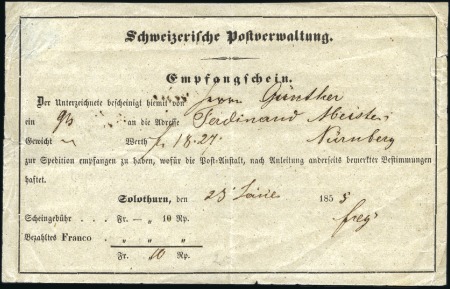 Schweizerische Postverwaltung.
Empfangschein.
Der Unterzeichnete bescheinigt hiemit von Herrn Günther
ein an die Adresse Ferdinand Meister
Gewicht Werth f. 18.27. Nürnberg
zur Spedition empfangen zu haben, wofür die Post-Anstalt, nach Anleitung anderseits bemerkter Bestimmungen
haftet.
Solothurn, den 25 1855
Scheingebühr . . . Fr. — „ 10 Rp.
Bezahltes Franco . . „ „ „
Fr. 10 Rp.